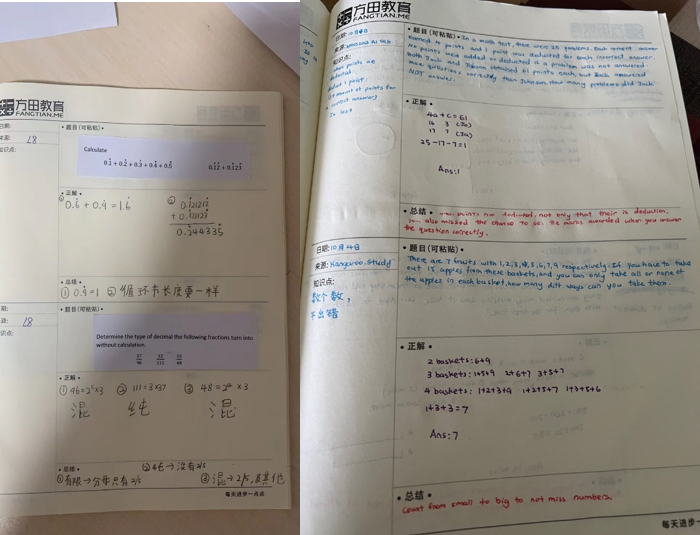 方田教育
FANGTIAN.ME
日期:
L8
知识点:
• 题目(可粘贴) •
Calculate
0.1̇ + 0.2̇ + 0.3̇ + 0.4̇ + 0.5̇
0.1̇2̇ + 0.1̇23̇
• 正解 •
① 0.6̇ + 0.9̇ = 1.6̇
②
0.244335
• 总结 •
① 0.9̇ = 1 ② 循环节长度要一样
L8
• 题目(可粘贴) •
Determine the type of decimal the following fractions turn into
without calculation.
• 正解 •
① 96=2⁵×3 ② 111=3×37 ③ 48=2⁴×3
混 纯 混
• 总结 •
②纯→没有2/5
①有限→分母只有2/5 ③混→2/5,及其他
每天进步一点点
方田教育
FANGTIAN.ME
日期:10月4日
知识点:
• 题目(可粘贴) • In a math test, there were 25 problems. Each correct answer
earned 4 points and 1 point was deducted for each incorrect answer.
No points were added or deducted if a problem was not answered.
Both Jack and Johnson obtained 61 points each, but Jack answered
more questions correctly than Johnson. How many problems did Jack
NOT answer?
• 正解 •
16 3 (Jo)
17 7 (Ja)
25-17-7=1
Ans:1
• 总结 •
points are deducted, not only that their is deduction,
you also missed the chance to get the marks awarded when you answer
the question correctly.
日期:10月4日
来源:Kangaroo.Study
知识点:
数个数,
不出错
• 题目(可粘贴) •
There are 7 fruits with 1,2,3,4,5,6,7,9 respectively. If you have to take
out 15 apples from these baskets, and you can only take all or none of
the apples in each basket, how many diff ways can you take them.
• 正解 •
2 baskets: 6+9
3 baskets: 1+5+9 2+6+7 3+5+7
4 baskets: 1+2+3+9 1+2+5+7 1+3+5+6
1+3+3=7
Ans:7
• 总结 •
Count from small to big to not miss numbers.
每天进步一